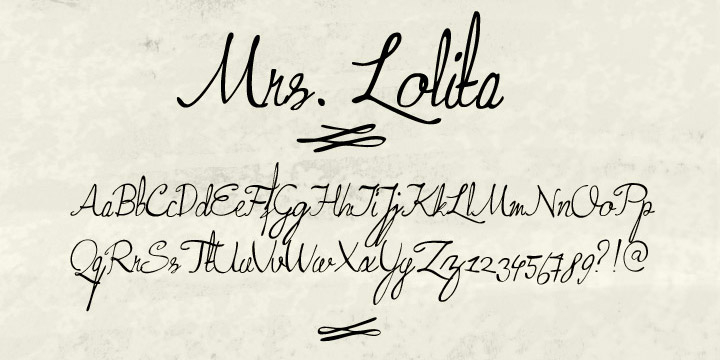 Mrs. Lolita
AaBbCcDdEeFfGgHhIiJjKkLlMmNnOoPp
QqRrSsTtUuVvWwXxYyZz123456789?!@